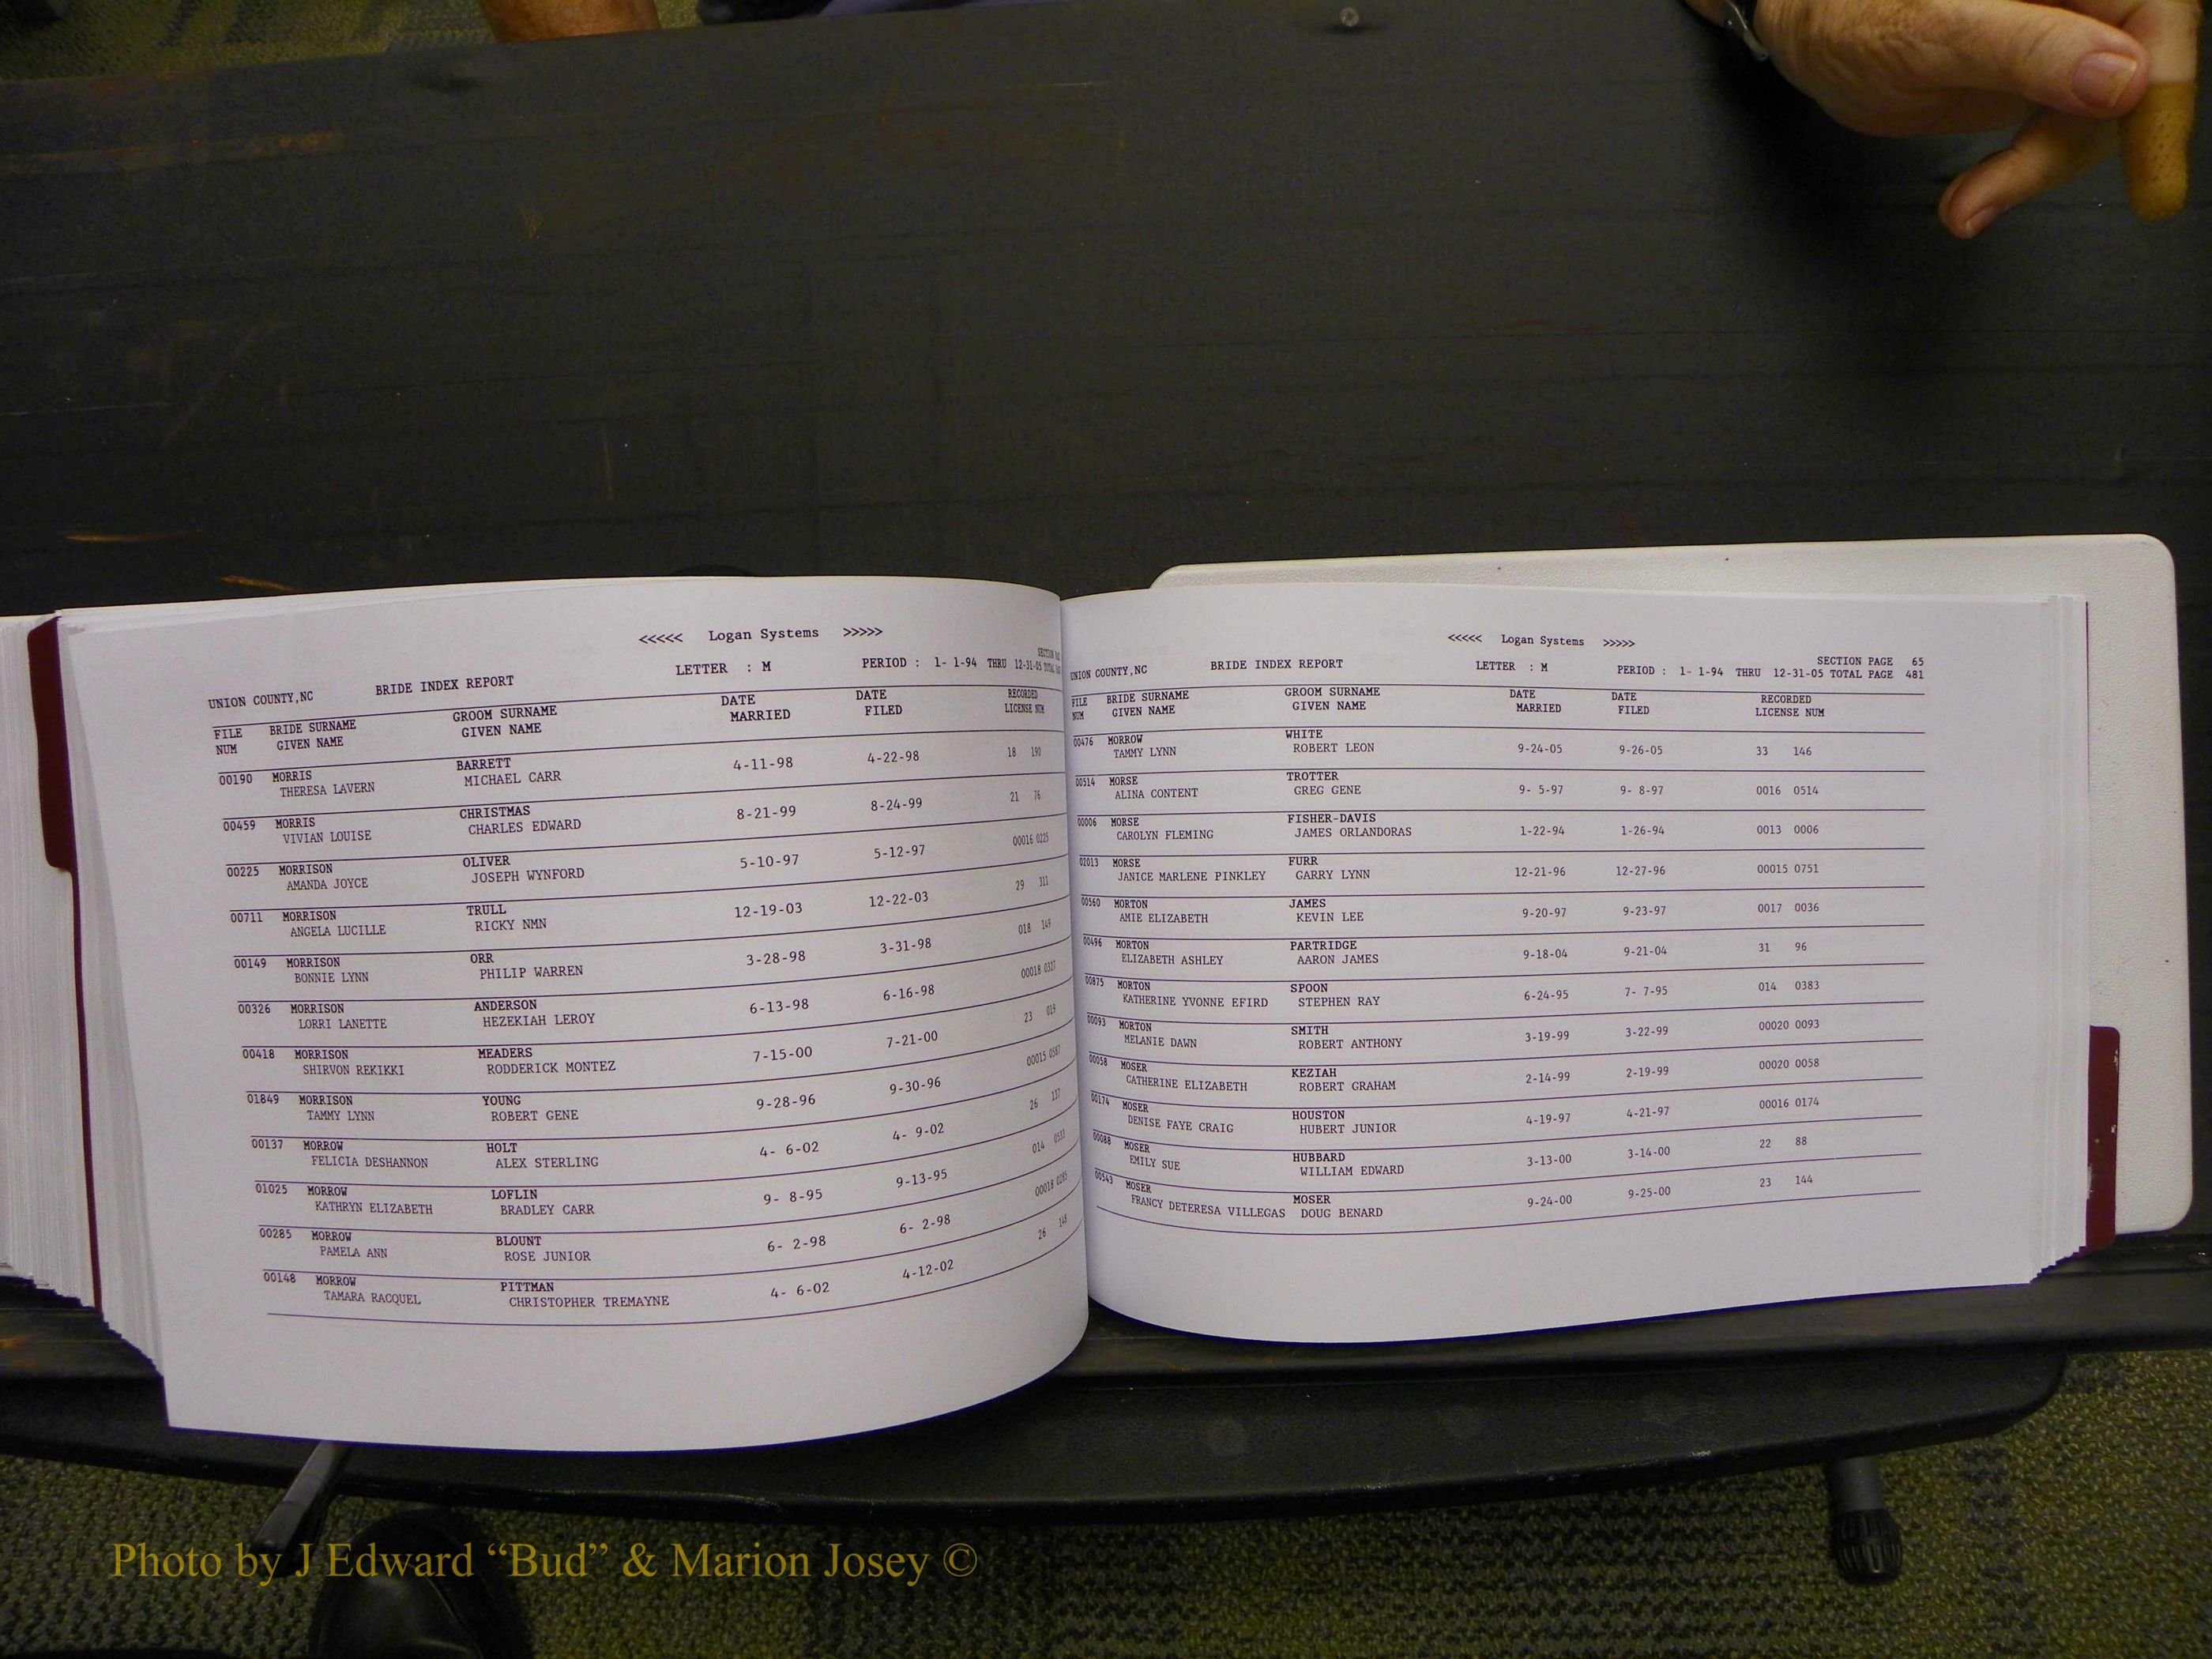 <<<<< Logan Systems >>>>>
UNION COUNTY,NC BRIDE INDEX REPORT LETTER : M PERIOD : 1- 1-94 THRU 12-31-05 TOTAL
SECTION
FILE BRIDE SURNAME GROOM SURNAME DATE DATE RECORDED
NUM GIVEN NAME GIVEN NAME MARRIED FILED LICENSE NUM
00190 MORRIS BARRETT 4-11-98 4-22-98 18 190
THERESA LAVERN MICHAEL CARR
00459 MORRIS CHRISTMAS 8-21-99 8-24-99 21 76
VIVIAN LOUISE CHARLES EDWARD
00225 MORRISON OLIVER 5-10-97 5-12-97 00016 0225
AMANDA JOYCE JOSEPH WYNFORD
00711 MORRISON TRULL 12-19-03 12-22-03 29 311
ANGELA LUCILLE RICKY NMN
00149 MORRISON ORR 3-28-98 3-31-98 018 149
BONNIE LYNN PHILIP WARREN
00326 MORRISON ANDERSON 6-13-98 6-16-98 00018
LORRI LANETTE HEZEKIAH LEROY
00418 MORRISON MEADERS 7-15-00 7-21-00 23 019
SHIRVON REKIKKI RODDERICK MONTEZ
01849 MORRISON YOUNG 9-28-96 9-30-96 00015 0587
TAMMY LYNN ROBERT GENE
00137 MORROW HOLT 4- 6-02 4- 9-02 26 137
FELICIA DESHANNON ALEX STERLING
01025 MORROW LOFLIN 9- 8-95 9-13-95 014
KATHRYN ELIZABETH BRADLEY CARR
00285 MORROW BLOUNT 6- 2-98 6- 2-98 00018 0285
PAMELA ANN ROSE JUNIOR
00148 MORROW PITTMAN 4- 6-02 4-12-02 26 148
TAMARA RACQUEL CHRISTOPHER TREMAYNE
<<<<< Logan Systems >>>>>
SECTION PAGE 65
UNION COUNTY,NC BRIDE INDEX REPORT LETTER : M PERIOD : 1- 1-94 THRU 12-31-05 TOTAL PAGE 481
FILE BRIDE SURNAME GROOM SURNAME DATE DATE RECORDED
NUM GIVEN NAME GIVEN NAME MARRIED FILED LICENSE NUM
00476 MORROW WHITE 9-24-05 9-26-05 33 146
TAMMY LYNN ROBERT LEON
00514 MORSE TROTTER 9- 5-97 9- 8-97 0016 0514
ALINA CONTENT GREG GENE
00006 MORSE FISHER-DAVIS 1-22-94 1-26-94 0013 0006
CAROLYN FLEMING JAMES ORLANDORAS
02013 MORSE FURR 12-21-96 12-27-96 00015 0751
JANICE MARLENE PINKLEY GARRY LYNN
00560 MORTON JAMES 9-20-97 9-23-97 0017 0036
AMIE ELIZABETH KEVIN LEE
00496 MORTON PARTRIDGE 9-18-04 9-21-04 31 96
ELIZABETH ASHLEY AARON JAMES
00875 MORTON SPOON 6-24-95 7- 7-95 014 0383
KATHERINE YVONNE EFIRD STEPHEN RAY
00093 MORTON SMITH 3-19-99 3-22-99 00020 0093
MELANIE DAWN ROBERT ANTHONY
00058 MOSER KEZIAH 2-14-99 2-19-99 00020 0058
CATHERINE ELIZABETH ROBERT GRAHAM
00174 MOSER HOUSTON 4-19-97 4-21-97 00016 0174
DENISE FAYE CRAIG HUBERT JUNIOR
00088 MOSER HUBBARD 3-13-00 3-14-00 22 88
EMILY SUE WILLIAM EDWARD
00543 MOSER MOSER 9-24-00 9-25-00 23 144
FRANCY DETERESA VILLEGAS DOUG BENARD
Photo by J Edward “Bud” & Marion Josey ©